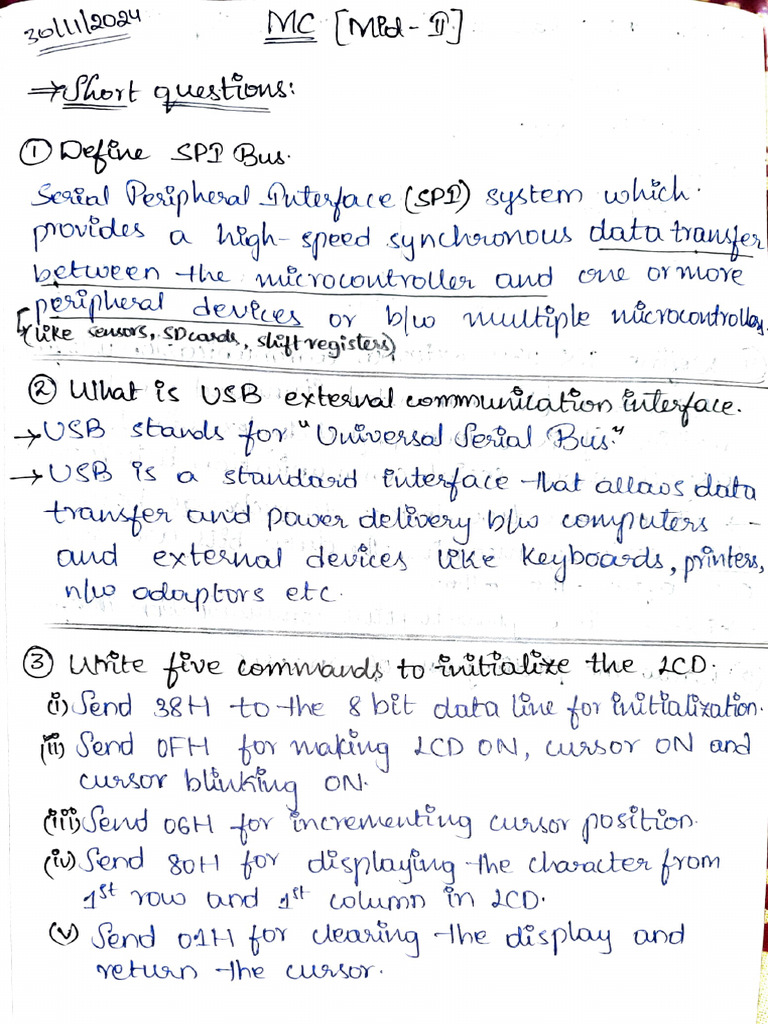 30/11/2024
MC [Mid-II]
→ Short questions:
① Define SPI Bus.
Serial Peripheral Interface (SPI) system which
provides a high-speed synchronous data transfer
between the microcontroller and one or more
peripheral devices or b/w multiple microcontrollers.
(like sensors, SD cards, shift registers)
② What is USB external communication interface.
→ USB stands for "Universal Serial Bus."
→ USB is a standard interface that allows data
transfer and power delivery b/w computers
and external devices like keyboards, printers,
n/w adaptors etc.
③ Write five commands to initialize the LCD.
(i) Send 38H to the 8 bit data line for initialization.
(ii) Send 0FH for making LCD ON, cursor ON and
cursor blinking ON.
(iii) Send 06H for incrementing cursor position.
(iv) Send 80H for displaying the character from
1st row and 1st column in LCD.
(v) Send 01H for clearing the display and
return the cursor.